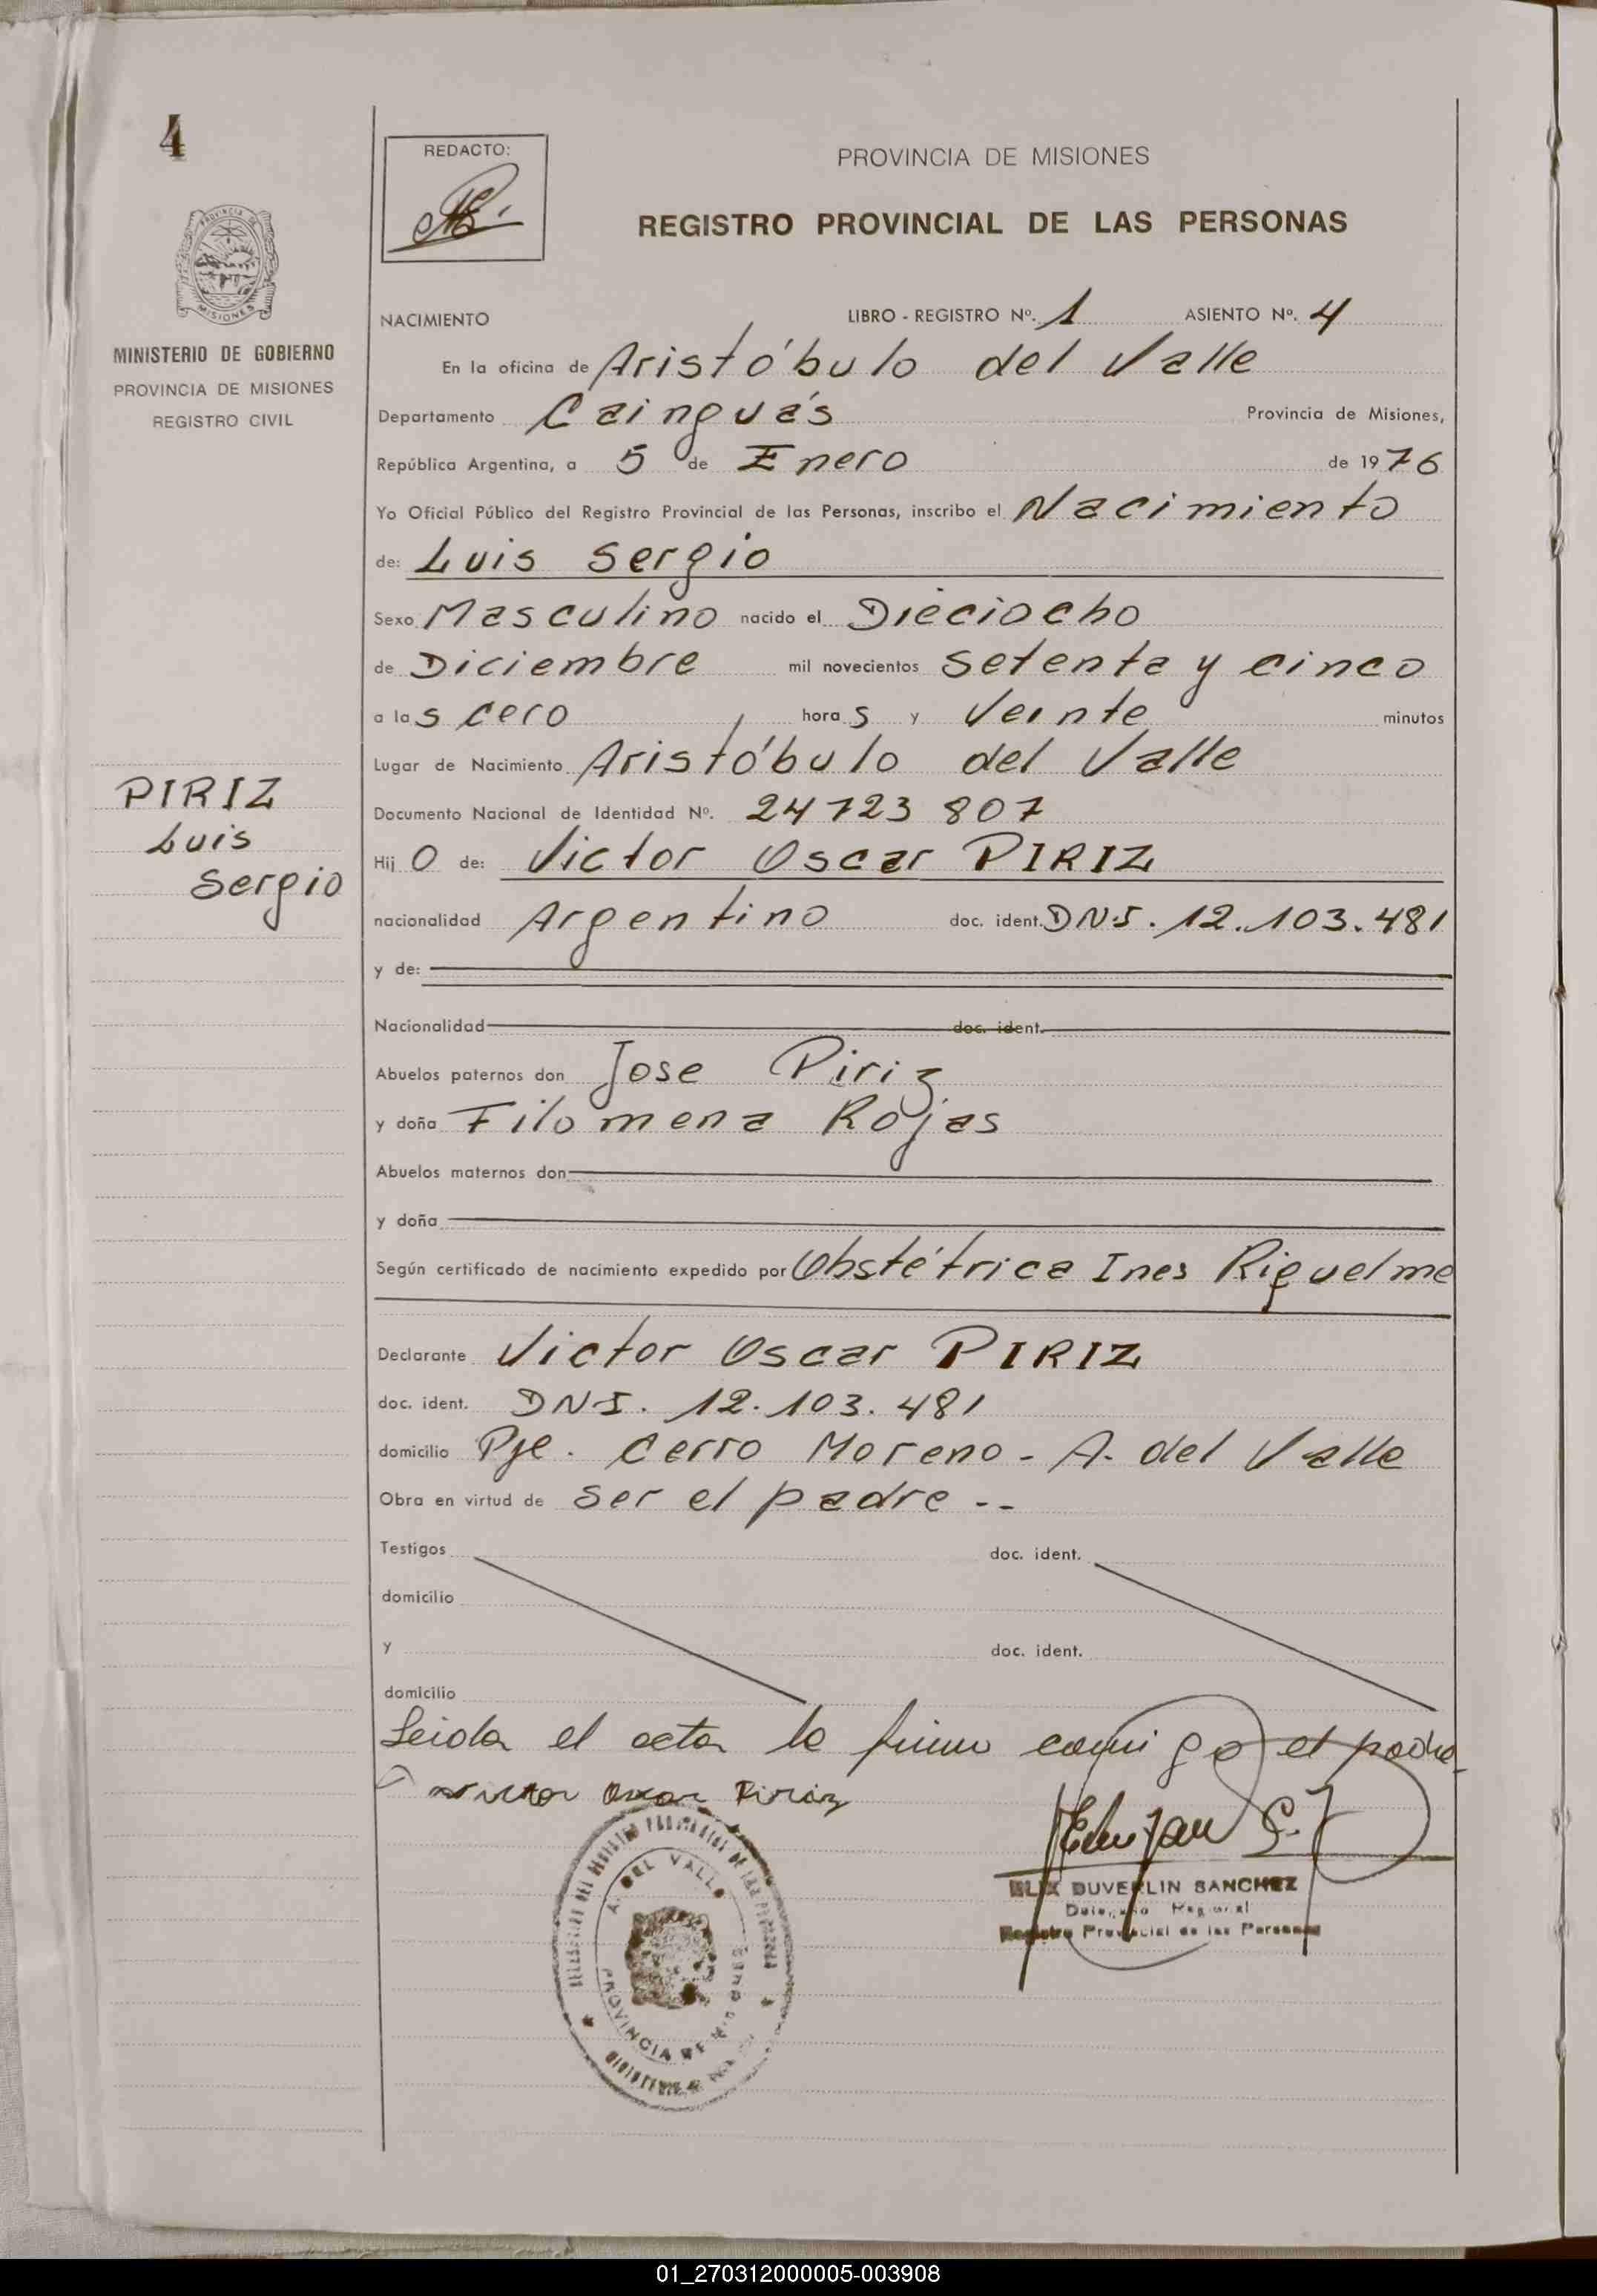 4
REDACTO:
PROVINCIA DE MISIONES
REGISTRO PROVINCIAL DE LAS PERSONAS
MISIONES
MINISTERIO DE GOBIERNO
PROVINCIA DE MISIONES
REGISTRO CIVIL
PIRIZ
Luis
Sergio
NACIMIENTO LIBRO - REGISTRO Nº. 1 ASIENTO Nº. 4
En la oficina de Aristóbulo del Valle
Departamento Cainguás Provincia de Misiones,
República Argentina, a 5 de Enero de 1976
Yo Oficial Público del Registro Provincial de las Personas, inscribo el Nacimiento
de: Luis Sergio
Sexo Masculino nacido el Dieciocho
de Diciembre mil novecientos setenta y cinco
a las cero horas y veinte minutos
Lugar de Nacimiento Aristóbulo del Valle
Documento Nacional de Identidad Nº. 24723807
Hijo de: Victor Oscar PIRIZ
nacionalidad Argentino doc. ident. DNI. 12.103.481
y de:
Nacionalidad doc. ident.
Abuelos paternos don Jose Piriz
y doña Filomena Rojas
Abuelos maternos don
y doña
Según certificado de nacimiento expedido por Obstétrica Ines Riquelme
Declarante Victor Oscar PIRIZ
doc. ident. DNI. 12.103.481
domicilio Pje. Cerro Moreno - A. del Valle
Obra en virtud de ser el padre --
Testigos doc. ident.
domicilio
y doc. ident.
domicilio
Leida el acta la firma conmigo el padre
Victor Oscar Piriz
DUVERLIN SANCHEZ
Registro Provincial de las Personas
A. DEL VALLE
PROVINCIA DE MISIONES
01_270312000005-003908